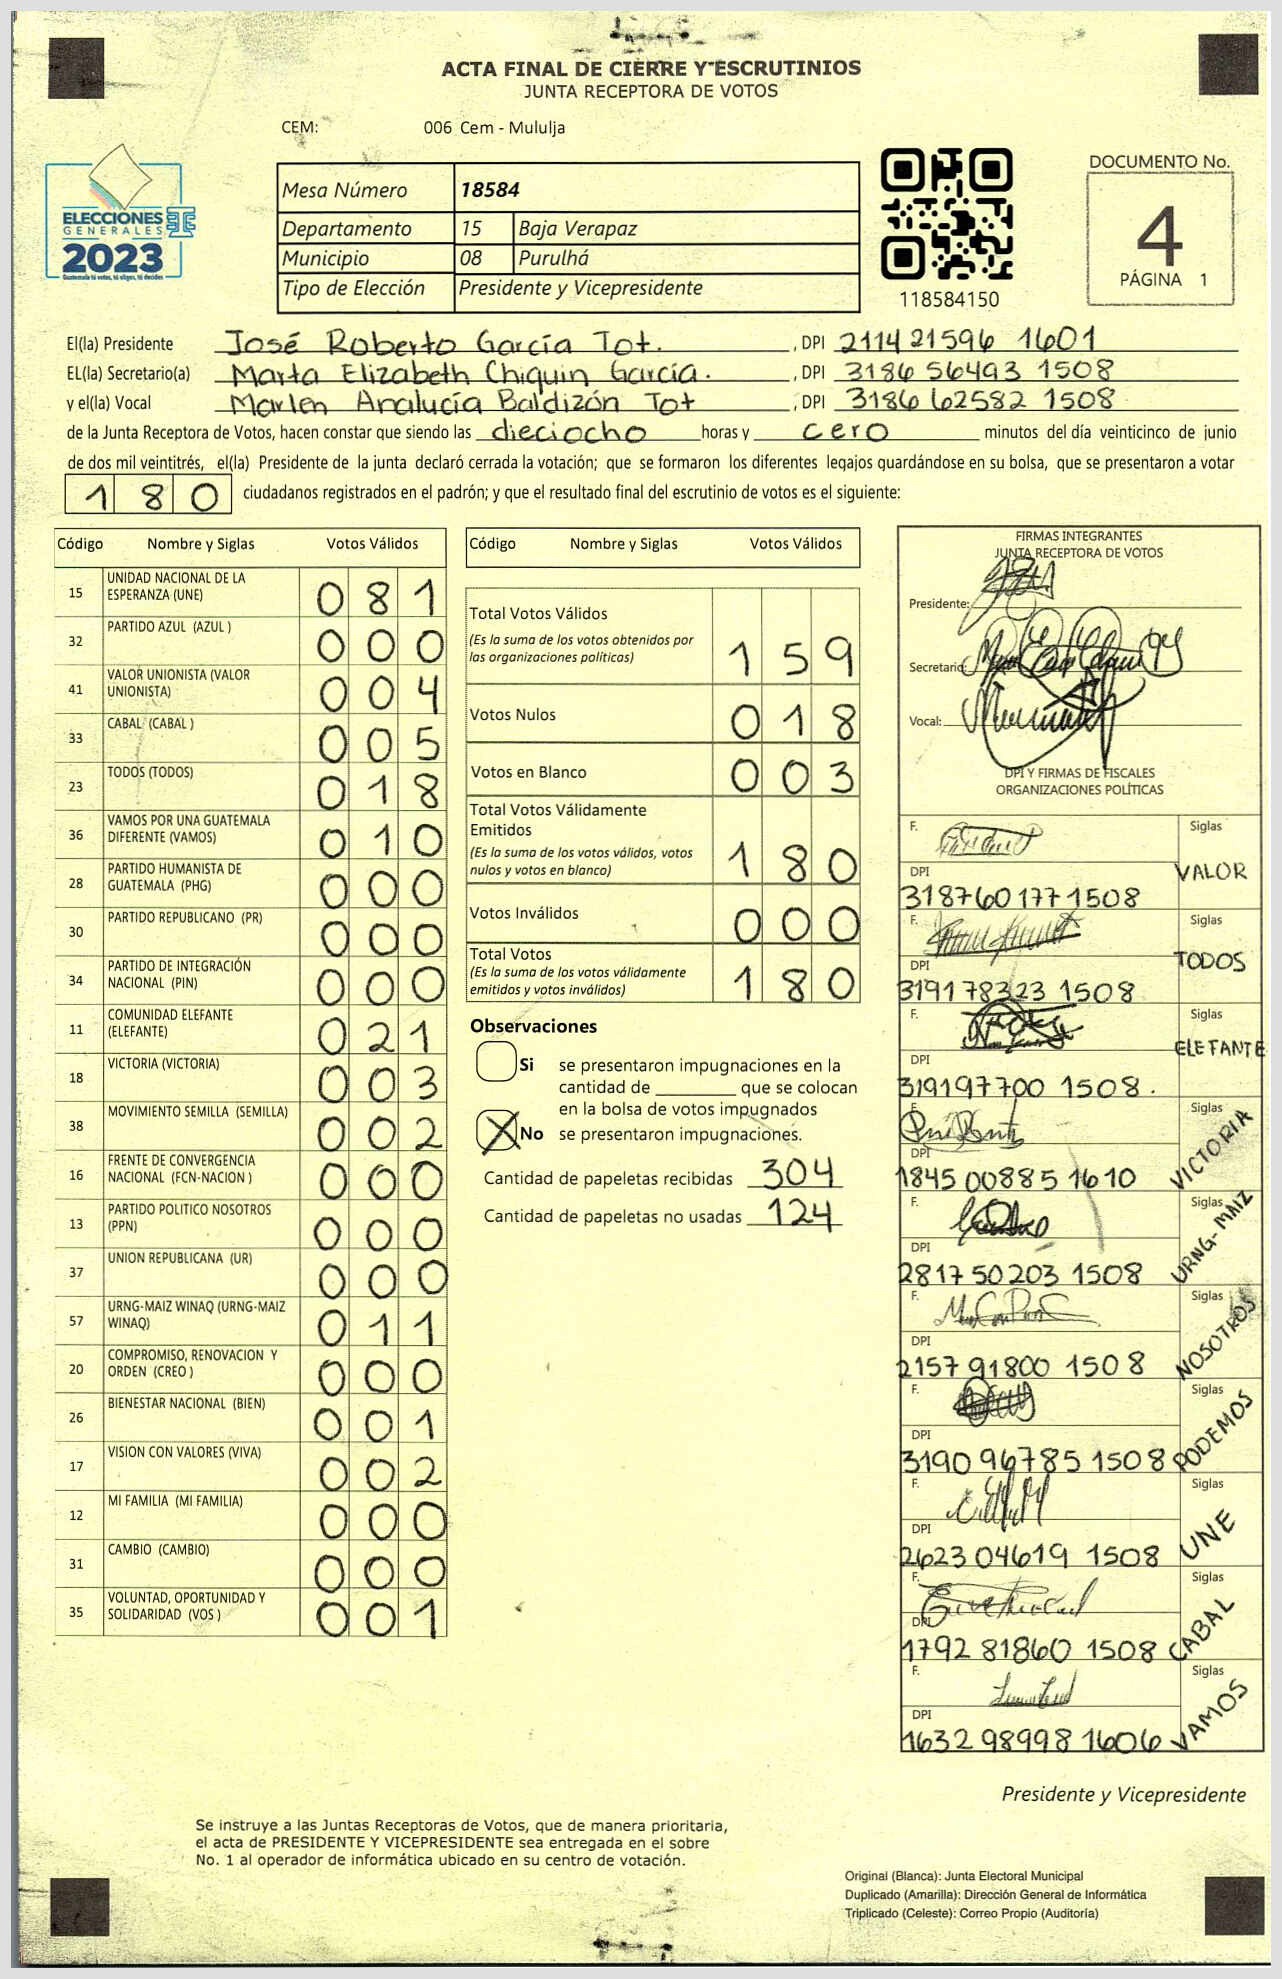 ACTA FINAL DE CIERRE Y ESCRUTINIOS
JUNTA RECEPTORA DE VOTOS
CEM: 006 Cem - Mululja
ELECCIONES
GENERALES
2023
Guatemala tú votas, tú eliges, tú decides
Mesa Número 18584
Departamento 15 Baja Verapaz
Municipio 08 Purulhá
Tipo de Elección Presidente y Vicepresidente
118584150
DOCUMENTO No.
4
PÁGINA 1
El(la) Presidente José Roberto García Tot. , DPI 2114 21596 1601
EL(la) Secretario(a) Marta Elizabeth Chiquin García. , DPI 3186 56493 1508
y el(la) Vocal Marlen Analucía Baldizón Tot , DPI 3186 62582 1508
de la Junta Receptora de Votos, hacen constar que siendo las dieciocho horas y cero minutos del día veinticinco de junio
de dos mil veintitrés, el(la) Presidente de la junta declaró cerrada la votación; que se formaron los diferentes legajos guardándose en su bolsa, que se presentaron a votar
180 ciudadanos registrados en el padrón; y que el resultado final del escrutinio de votos es el siguiente:
Código Nombre y Siglas Votos Válidos
15 UNIDAD NACIONAL DE LA ESPERANZA (UNE) 081
32 PARTIDO AZUL (AZUL ) 000
41 VALOR UNIONISTA (VALOR UNIONISTA) 004
33 CABAL (CABAL ) 005
23 TODOS (TODOS) 018
36 VAMOS POR UNA GUATEMALA DIFERENTE (VAMOS) 010
28 PARTIDO HUMANISTA DE GUATEMALA (PHG) 000
30 PARTIDO REPUBLICANO (PR) 000
34 PARTIDO DE INTEGRACIÓN NACIONAL (PIN) 000
11 COMUNIDAD ELEFANTE (ELEFANTE) 021
18 VICTORIA (VICTORIA) 003
38 MOVIMIENTO SEMILLA (SEMILLA) 002
16 FRENTE DE CONVERGENCIA NACIONAL (FCN-NACION ) 000
13 PARTIDO POLITICO NOSOTROS (PPN) 000
37 UNION REPUBLICANA (UR) 000
57 URNG-MAIZ WINAQ (URNG-MAIZ WINAQ) 011
20 COMPROMISO, RENOVACION Y ORDEN (CREO ) 000
26 BIENESTAR NACIONAL (BIEN) 001
17 VISION CON VALORES (VIVA) 002
12 MI FAMILIA (MI FAMILIA) 000
31 CAMBIO (CAMBIO) 000
35 VOLUNTAD, OPORTUNIDAD Y SOLIDARIDAD (VOS ) 001
Código Nombre y Siglas Votos Válidos
Total Votos Válidos
(Es la suma de los votos obtenidos por
las organizaciones políticas) 159
Votos Nulos 018
Votos en Blanco 003
Total Votos Válidamente
Emitidos
(Es la suma de los votos válidos, votos
nulos y votos en blanco) 180
Votos Inválidos 000
Total Votos
(Es la suma de los votos válidamente
emitidos y votos inválidos) 180
Observaciones
Si se presentaron impugnaciones en la
cantidad de ________ que se colocan
en la bolsa de votos impugnados
X No se presentaron impugnaciones.
Cantidad de papeletas recibidas 304
Cantidad de papeletas no usadas 124
FIRMAS INTEGRANTES
JUNTA RECEPTORA DE VOTOS
Presidente:
Secretario:
Vocal:
DPI Y FIRMAS DE FISCALES
ORGANIZACIONES POLÍTICAS
F. Siglas
DPI VALOR
318760177 1508
F. Siglas
DPI TODOS
319178323 1508
F. Siglas
DPI ELEFANTE
319197700 1508.
F. Siglas
DPI VICTORIA
1845 00885 1610
F. Siglas
DPI URNG-MAIZ
2817 50203 1508
F. Siglas
DPI NOSOTROS
2157 91800 1508
F. Siglas
DPI PODEMOS
3190 96785 1508
F. Siglas
DPI UNE
2623 04619 1508
F. Siglas
DPI CABAL
1792 81860 1508
F. Siglas
DPI VAMOS
1632 98998 1606
Presidente y Vicepresidente
Se instruye a las Juntas Receptoras de Votos, que de manera prioritaria,
el acta de PRESIDENTE Y VICEPRESIDENTE sea entregada en el sobre
No. 1 al operador de informática ubicado en su centro de votación.
Original (Blanca): Junta Electoral Municipal
Duplicado (Amarilla): Dirección General de Informática
Triplicado (Celeste): Correo Propio (Auditoría)